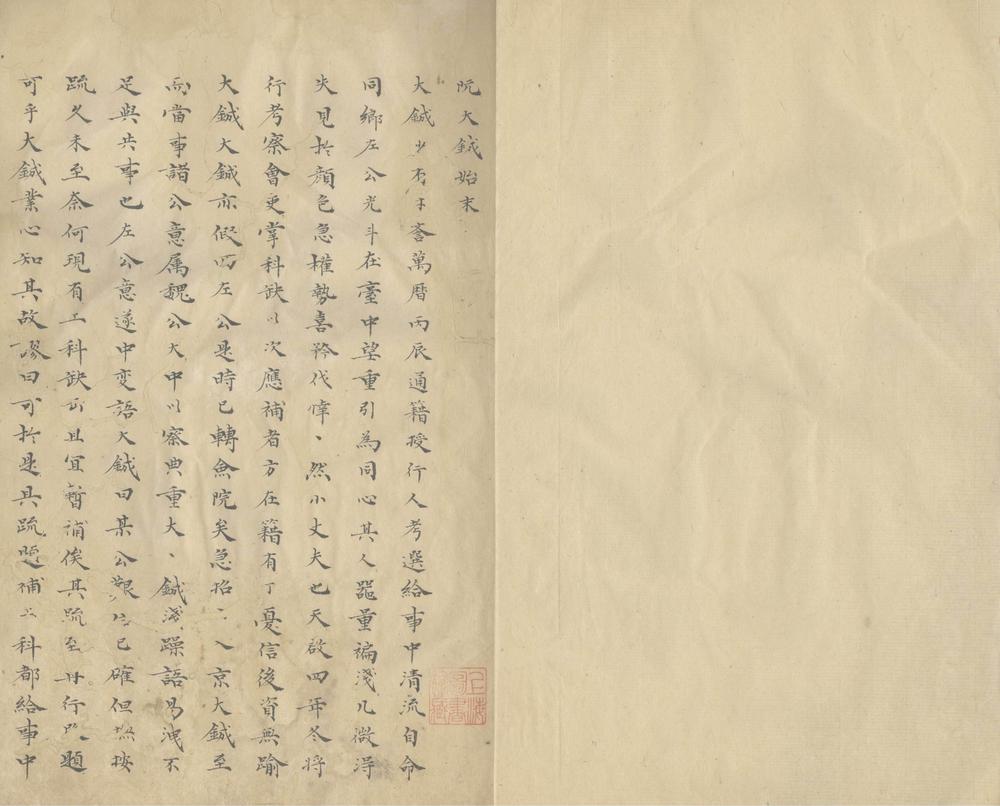 阮大鋮始末
大鋮少有才 萬曆丙辰通籍授行人考選給事中清流自命
同鄉左公光斗在臺中望重引為同心其人器量褊淺几微得
失見於顏色急權勢喜矜伐悻、然小丈夫也天啟四年冬將
行考察會吏掌科缺以次應補者方在籍有丁憂信後資無踰
大鋮大鋮亦假回左公是時已轉僉院矣急招之入京大鋮至
而當事諸公意属魏公大中以察典重大、鋮淺躁語易洩不
足與共事也左公意遂中变語大鋮曰某公艱信已確但撫按
疏久未至奈何現有工科缺 且宜暫補俟其疏至再行 題
可乎大鋮業心知其故謬曰可於是具疏題補工科都給事中
上海圖書館藏